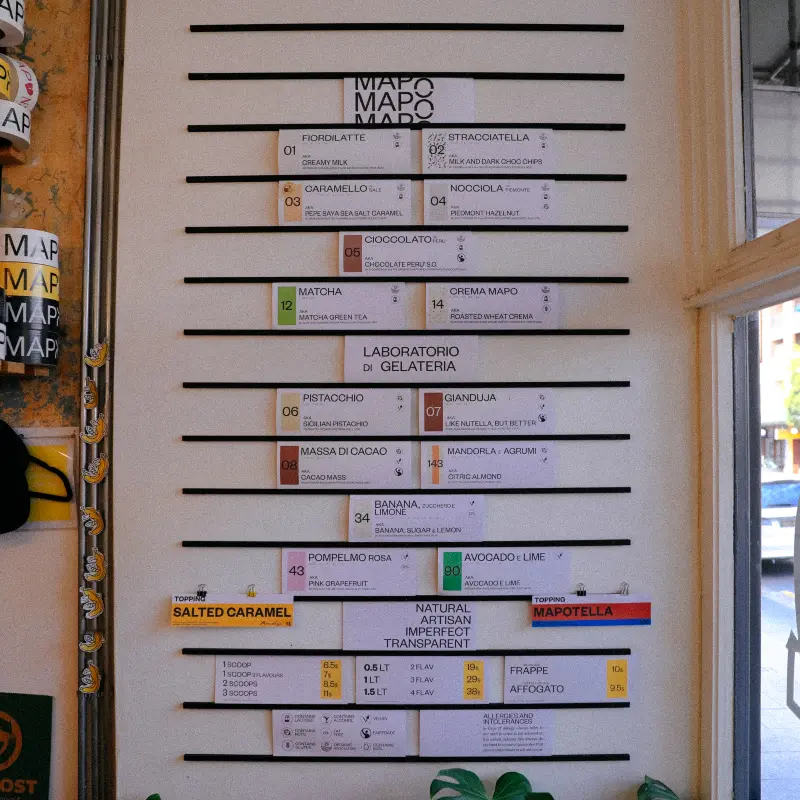 MAPO
MAPO
MAPO
01
FIORDILATTE
AKA
CREAMY MILK
02
STRACCIATELLA
AKA
MILK AND DARK CHOC CHIPS
03
CARAMELLO SALE
AKA
PEPE SAYA SEA SALT CARAMEL
04
NOCCIOLA PIEMONTE
AKA
PIEDMONT HAZELNUT
05
CIOCCOLATO PERU
AKA
CHOCOLATE PERU' S.O.
12
MATCHA
AKA
MATCHA GREEN TEA
14
CREMA MAPO
AKA
ROASTED WHEAT CREMA
LABORATORIO
DI GELATERIA
06
PISTACCHIO
AKA
SICILIAN PISTACHIO
07
GIANDUJA
AKA
LIKE NUTELLA, BUT BETTER
08
MASSA DI CACAO
AKA
CACAO MASS
143
MANDORLA E AGRUMI
AKA
CITRIC ALMOND
34
BANANA, ZUCCHERO E
LIMONE
AKA
BANANA, SUGAR & LEMON
43
POMPELMO ROSA
AKA
PINK GRAPEFRUIT
90
AVOCADO E LIME
AKA
AVOCADO E LIME
TOPPING
SALTED CARAMEL
NATURAL
ARTISAN
IMPERFECT
TRANSPARENT
TOPPING
MAPOTELLA
1 SCOOP 6.5$
1 SCOOP 2 FLAVOURS 7$
2 SCOOPS 8.5$
3 SCOOPS 11$
0.5 LT 2 FLAV 19$
1 LT 3 FLAV 29$
1.5 LT 4 FLAV 38$
FRAPPE 10$
AFFOGATO 9.5$
CONTAINS LACTOSE
CONTAINS ALCOHOL
VEGAN
CONTAINS NUTS
FAIRTRADE
CONTAINS GLUTEN
CONTAINS
ALLERGIES AND
INTOLERANCES
MAP
MAP
MAP
MAP
OST